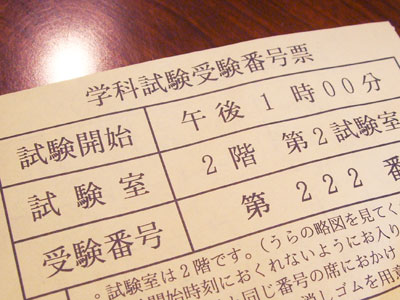 学科試験受験番号票
試験開始 午後1時00分
試験室 2階 第2試験室
受験番号 第 222 番
。試験室は2階です。(うらの略図を見てく
開始時刻におくれないようにお入り
同じ番号の席におかけ
ゴムを用意